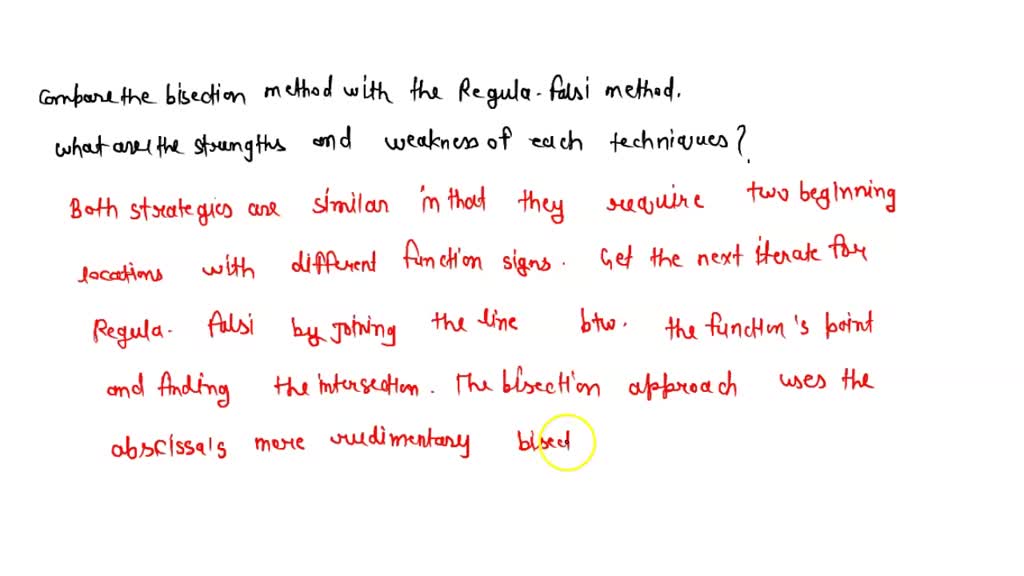 Compare the bisection method with the Regula-falsi method.
what are the strengths and weakness of each techniques?
Both strategies are similar in that they require two beginning
locations with different function signs. Get the next iterate for
Regula- falsi by joining the line btw. the function's point
and finding the intersection. The bisection approach uses the
abscissa's more rudimentary bisect